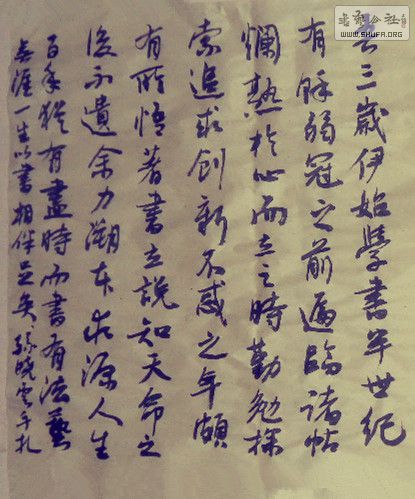 書法公社
WWW.SHUFA.ORG
吾三歲伊始學書半世紀
有餘弱冠之前遍臨諸帖
爛熟於心而立之時勤勉探
索追求創新不惑之年頗
有所悟著書立說知天命之
後不遺余力溯本求源人生
百年猶有盡時而書有法藝
無涯一生以書相伴足矣孫曉雲手札